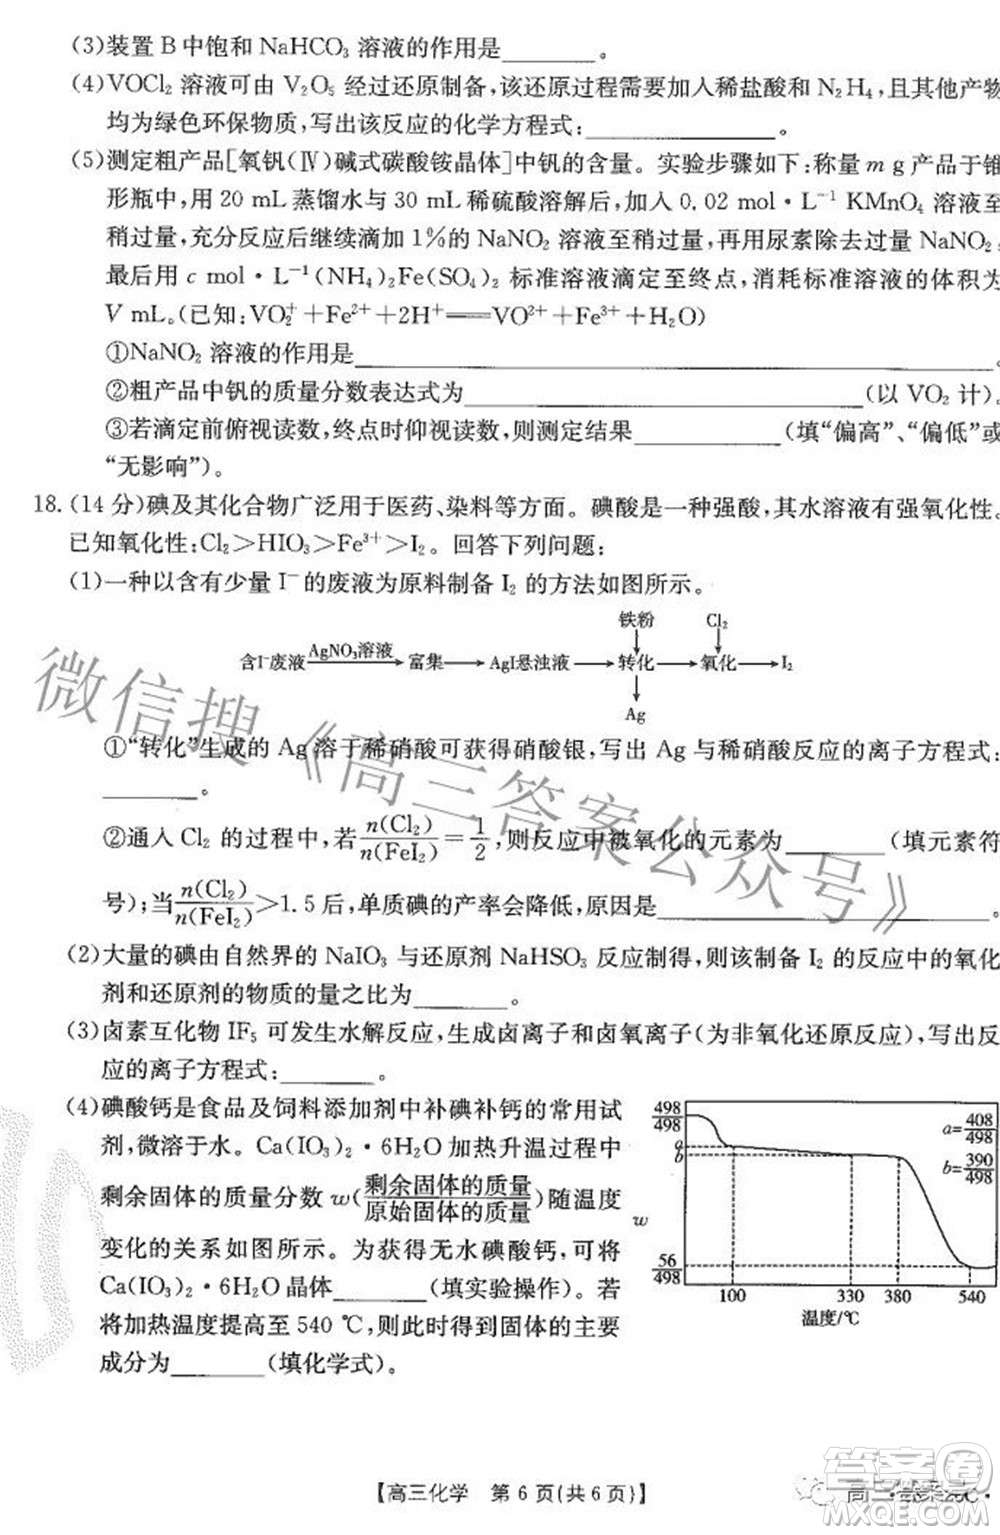 (3)装置 B 中饱和 NaHCO₃ 溶液的作用是________。
(4)VOCl₂ 溶液可由 V₂O₅ 经过还原制备,该还原过程需要加入稀盐酸和 N₂H₄,且其他产物
均为绿色环保物质,写出该反应的化学方程式:________________。
(5)测定粗产品[氧钒(Ⅳ)碱式碳酸铵晶体]中钒的含量。实验步骤如下:称量 m g 产品于锥
形瓶中,用 20 mL 蒸馏水与 30 mL 稀硫酸溶解后,加入 0.02 mol·L⁻¹ KMnO₄ 溶液至
稍过量,充分反应后继续滴加 1%的 NaNO₂ 溶液至稍过量,再用尿素除去过量 NaNO₂,
最后用 c mol·L⁻¹(NH₄)₂Fe(SO₄)₂ 标准溶液滴定至终点,消耗标准溶液的体积为
V mL。(已知:VO₂⁺+Fe²⁺+2H⁺══VO²⁺+Fe³⁺+H₂O)
①NaNO₂ 溶液的作用是________________________________。
②粗产品中钒的质量分数表达式为________________________(以 VO₂ 计)。
③若滴定前俯视读数,终点时仰视读数,则测定结果________(填“偏高”、“偏低”或
“无影响”)。
18.(14 分)碘及其化合物广泛用于医药、染料等方面。碘酸是一种强酸,其水溶液有强氧化性。
已知氧化性:Cl₂>HIO₃>Fe³⁺>I₂。回答下列问题:
(1)一种以含有少量 I⁻ 的废液为原料制备 I₂ 的方法如图所示。
铁粉 Cl₂
含I⁻废液 AgNO₃溶液→ 富集→AgI悬浊液→转化→氧化→I₂
Ag
①“转化”生成的 Ag 溶于稀硝酸可获得硝酸银,写出 Ag 与稀硝酸反应的离子方程式:
________。
②通入 Cl₂ 的过程中,若n(Cl₂)/n(FeI₂)=1/2,则反应中被氧化的元素为________(填元素符
号);当n(Cl₂)/n(FeI₂)>1.5后,单质碘的产率会降低,原因是________________。
(2)大量的碘由自然界的 NaIO₃ 与还原剂 NaHSO₃ 反应制得,则制备 I₂ 的反应中的氧化
剂和还原剂的物质的量之比为________。
(3)卤素互化物 IF₅ 可发生水解反应,生成卤离子和卤氧离子(为非氧化还原反应),写出反
应的离子方程式:________。
(4)碘酸钙是食品及饲料添加剂中补碘补钙的常用试
剂,微溶于水。Ca(IO₃)₂·6H₂O 加热升温过程中
剩余固体的质量分数 w(剩余固体的质量/原始固体的质量)随温度
变化的关系如图所示。为获得无水碘酸钙,可将
Ca(IO₃)₂·6H₂O 晶体________(填实验操作)。若
将加热温度提高至 540 ℃,则此时得到固体的主要
成分为________(填化学式)。
498/498
a
b
w
56/498
a=408/498
b=390/498
100 330 380 540
温度/℃
【高三化学 第 6 页(共 6 页)】
微信搜《高三答案公众号》
答案圈
MXQE.COM